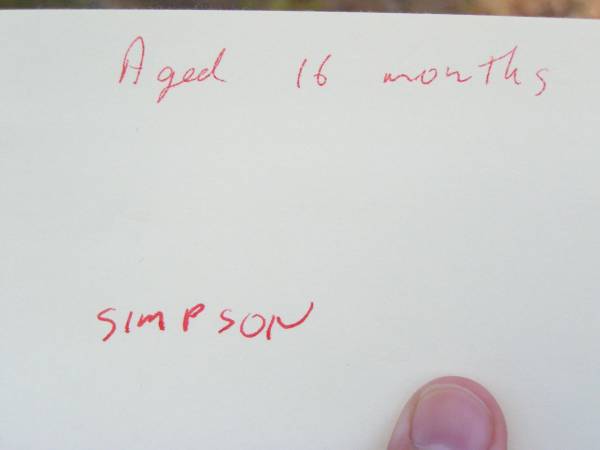 Aged 16 months
SIMPSON